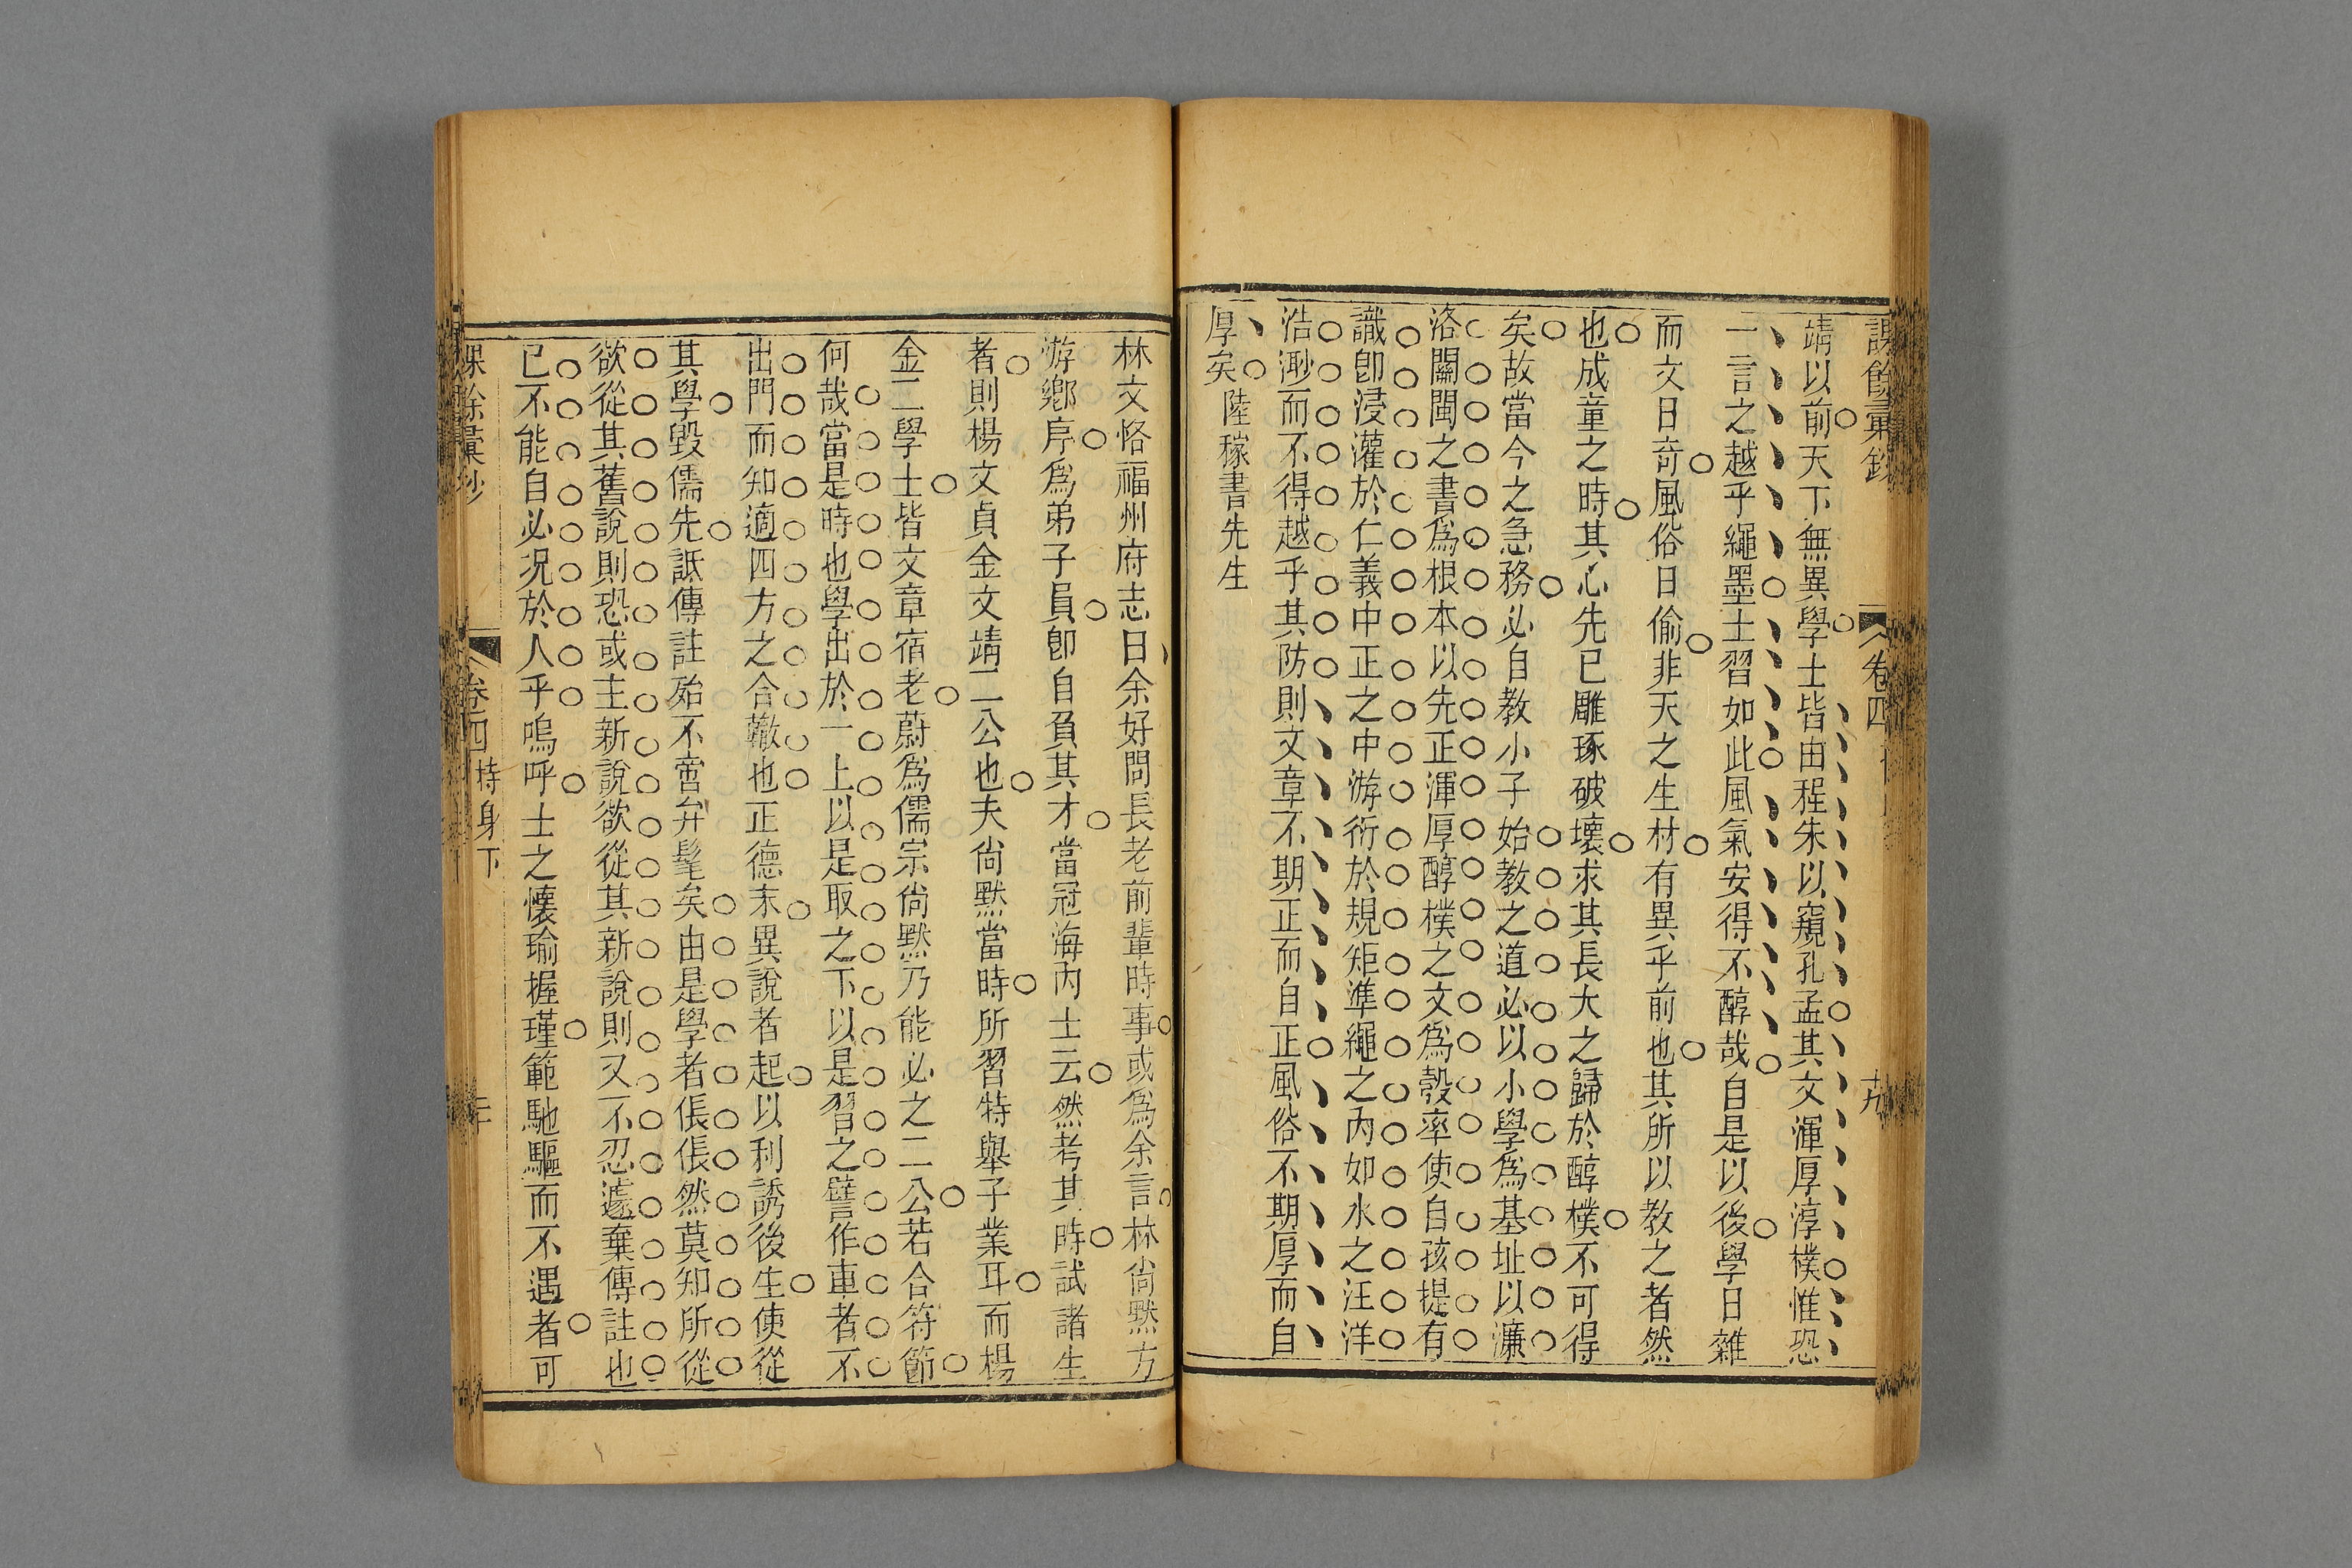 課餘彙鈔
卷四
靖以前天下無異學士皆由程朱以窺孔孟其文渾厚淳樸惟恐
一言之越乎繩墨士習如此風氣安得不醇哉自是以後學日雜
而文日奇風俗日偷非天之生材有異乎前也其所以教之者然
也成童之時其心先已雕琢破壞求其長大之歸於醇樸不可得
矣故當今之急務必自教小子始教之道必以小學爲基址以濂
洛關閩之書爲根本以先正渾厚醇樸之文爲彀率使自孩提有
識卽浸灌於仁義中正之中游衍於規矩準繩之內如水之汪洋
浩渺而不得越乎其防則文章不期正而自正風俗不期厚而自
厚矣陸稼書先生
林文恪福州府志曰余好問長老前輩時事或爲余言林尙默方
游鄉序爲弟子員卽自負其才當冠海內士云然考其時試諸生
者則楊文貞金文靖二公也夫尙默當時所習特舉子業耳而楊
金二學士皆文章宿老蔚爲儒宗尙默乃能必之二公若合符節
何哉當是時也學出於一上以是取之下以是習之譬作車者不
出門而知適四方之合轍也正德末異說者起以利誘後生使從
其學毀儒先詆傳註殆不啻弁髦矣由是學者倀倀然莫知所從
欲從其舊說則恐或主新說欲從其新說則又不忍遽棄傳註也
已不能自必况於人乎嗚呼士之懷瑜握瑾範馳驅而不遇者可
課餘彙鈔
卷四 持身下